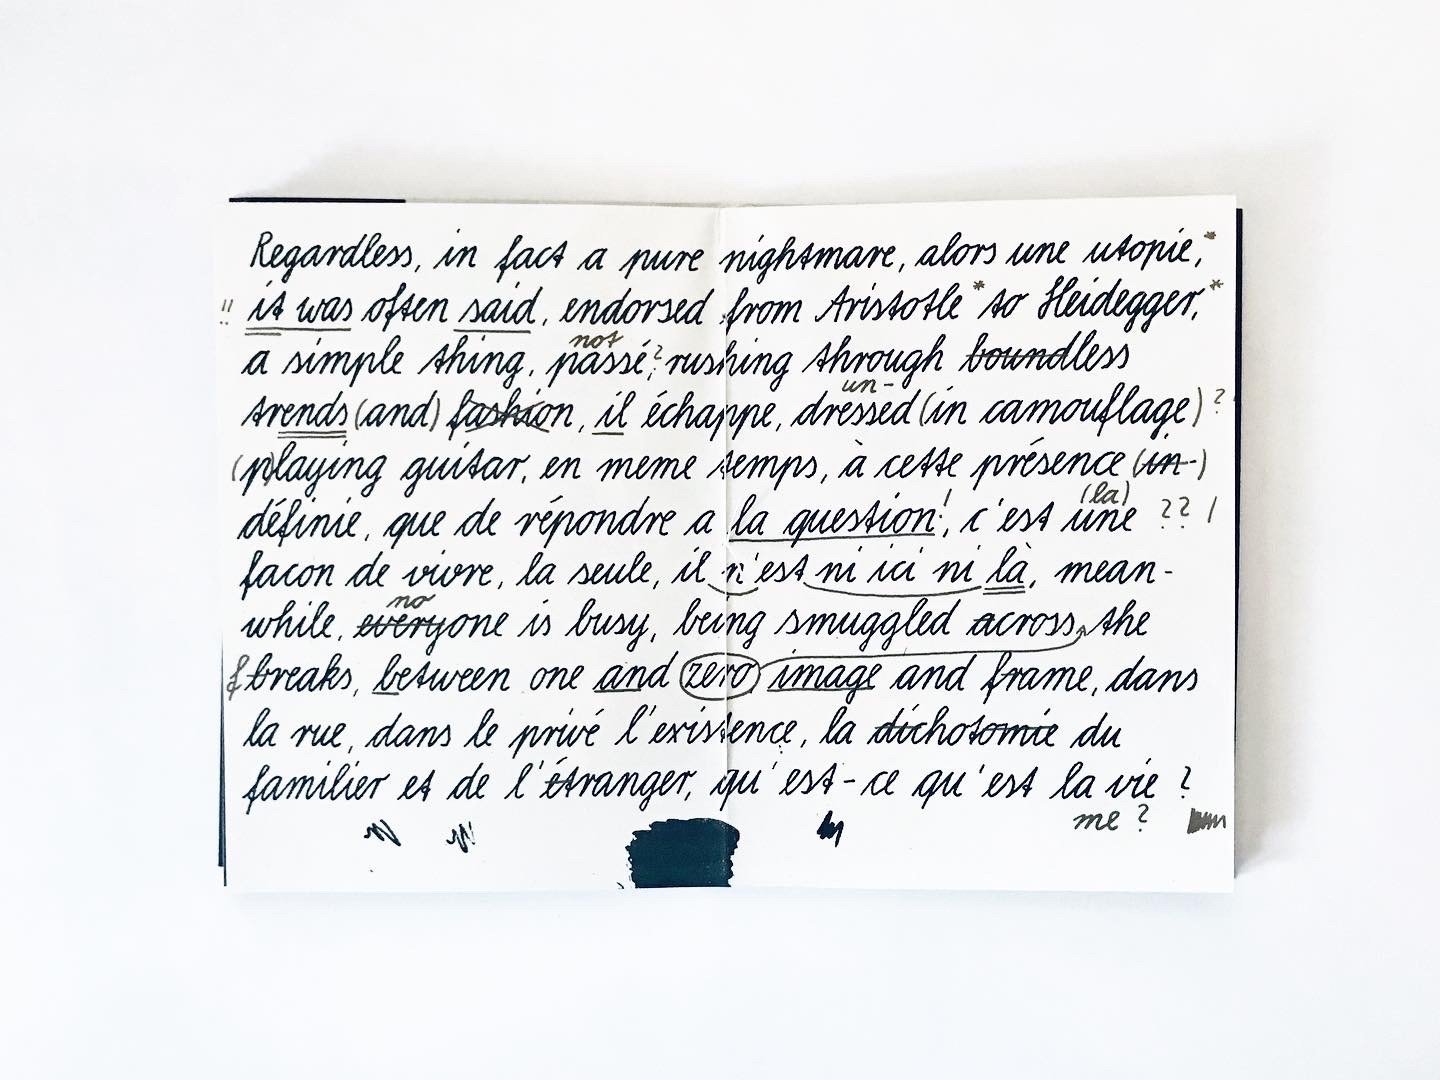 Regardless, in fact a pure nightmare, alors une utopie,*
!! it was often said, endorsed from Aristotle * to Heidegger,*
not
a simple thing, passé,? rushing through boundless
un-
trends (and) fashion, il échappe, dressed (in camouflage) ?
(p)laying guitar, en meme temps, à cette présence (in-)
(la)
définie, que de répondre a la question!, c'est une ?? /
facon de vivre, la seule, il n'est ni ici ni là, mean-
no
while, everyone is busy, being smuggled across, the
f breaks, between one and zero, image and frame, dans
la rue, dans le privé l'existence, la dichotomie du
familier et de l'étranger, qu'est-ce qu'est la vie ?
me ?